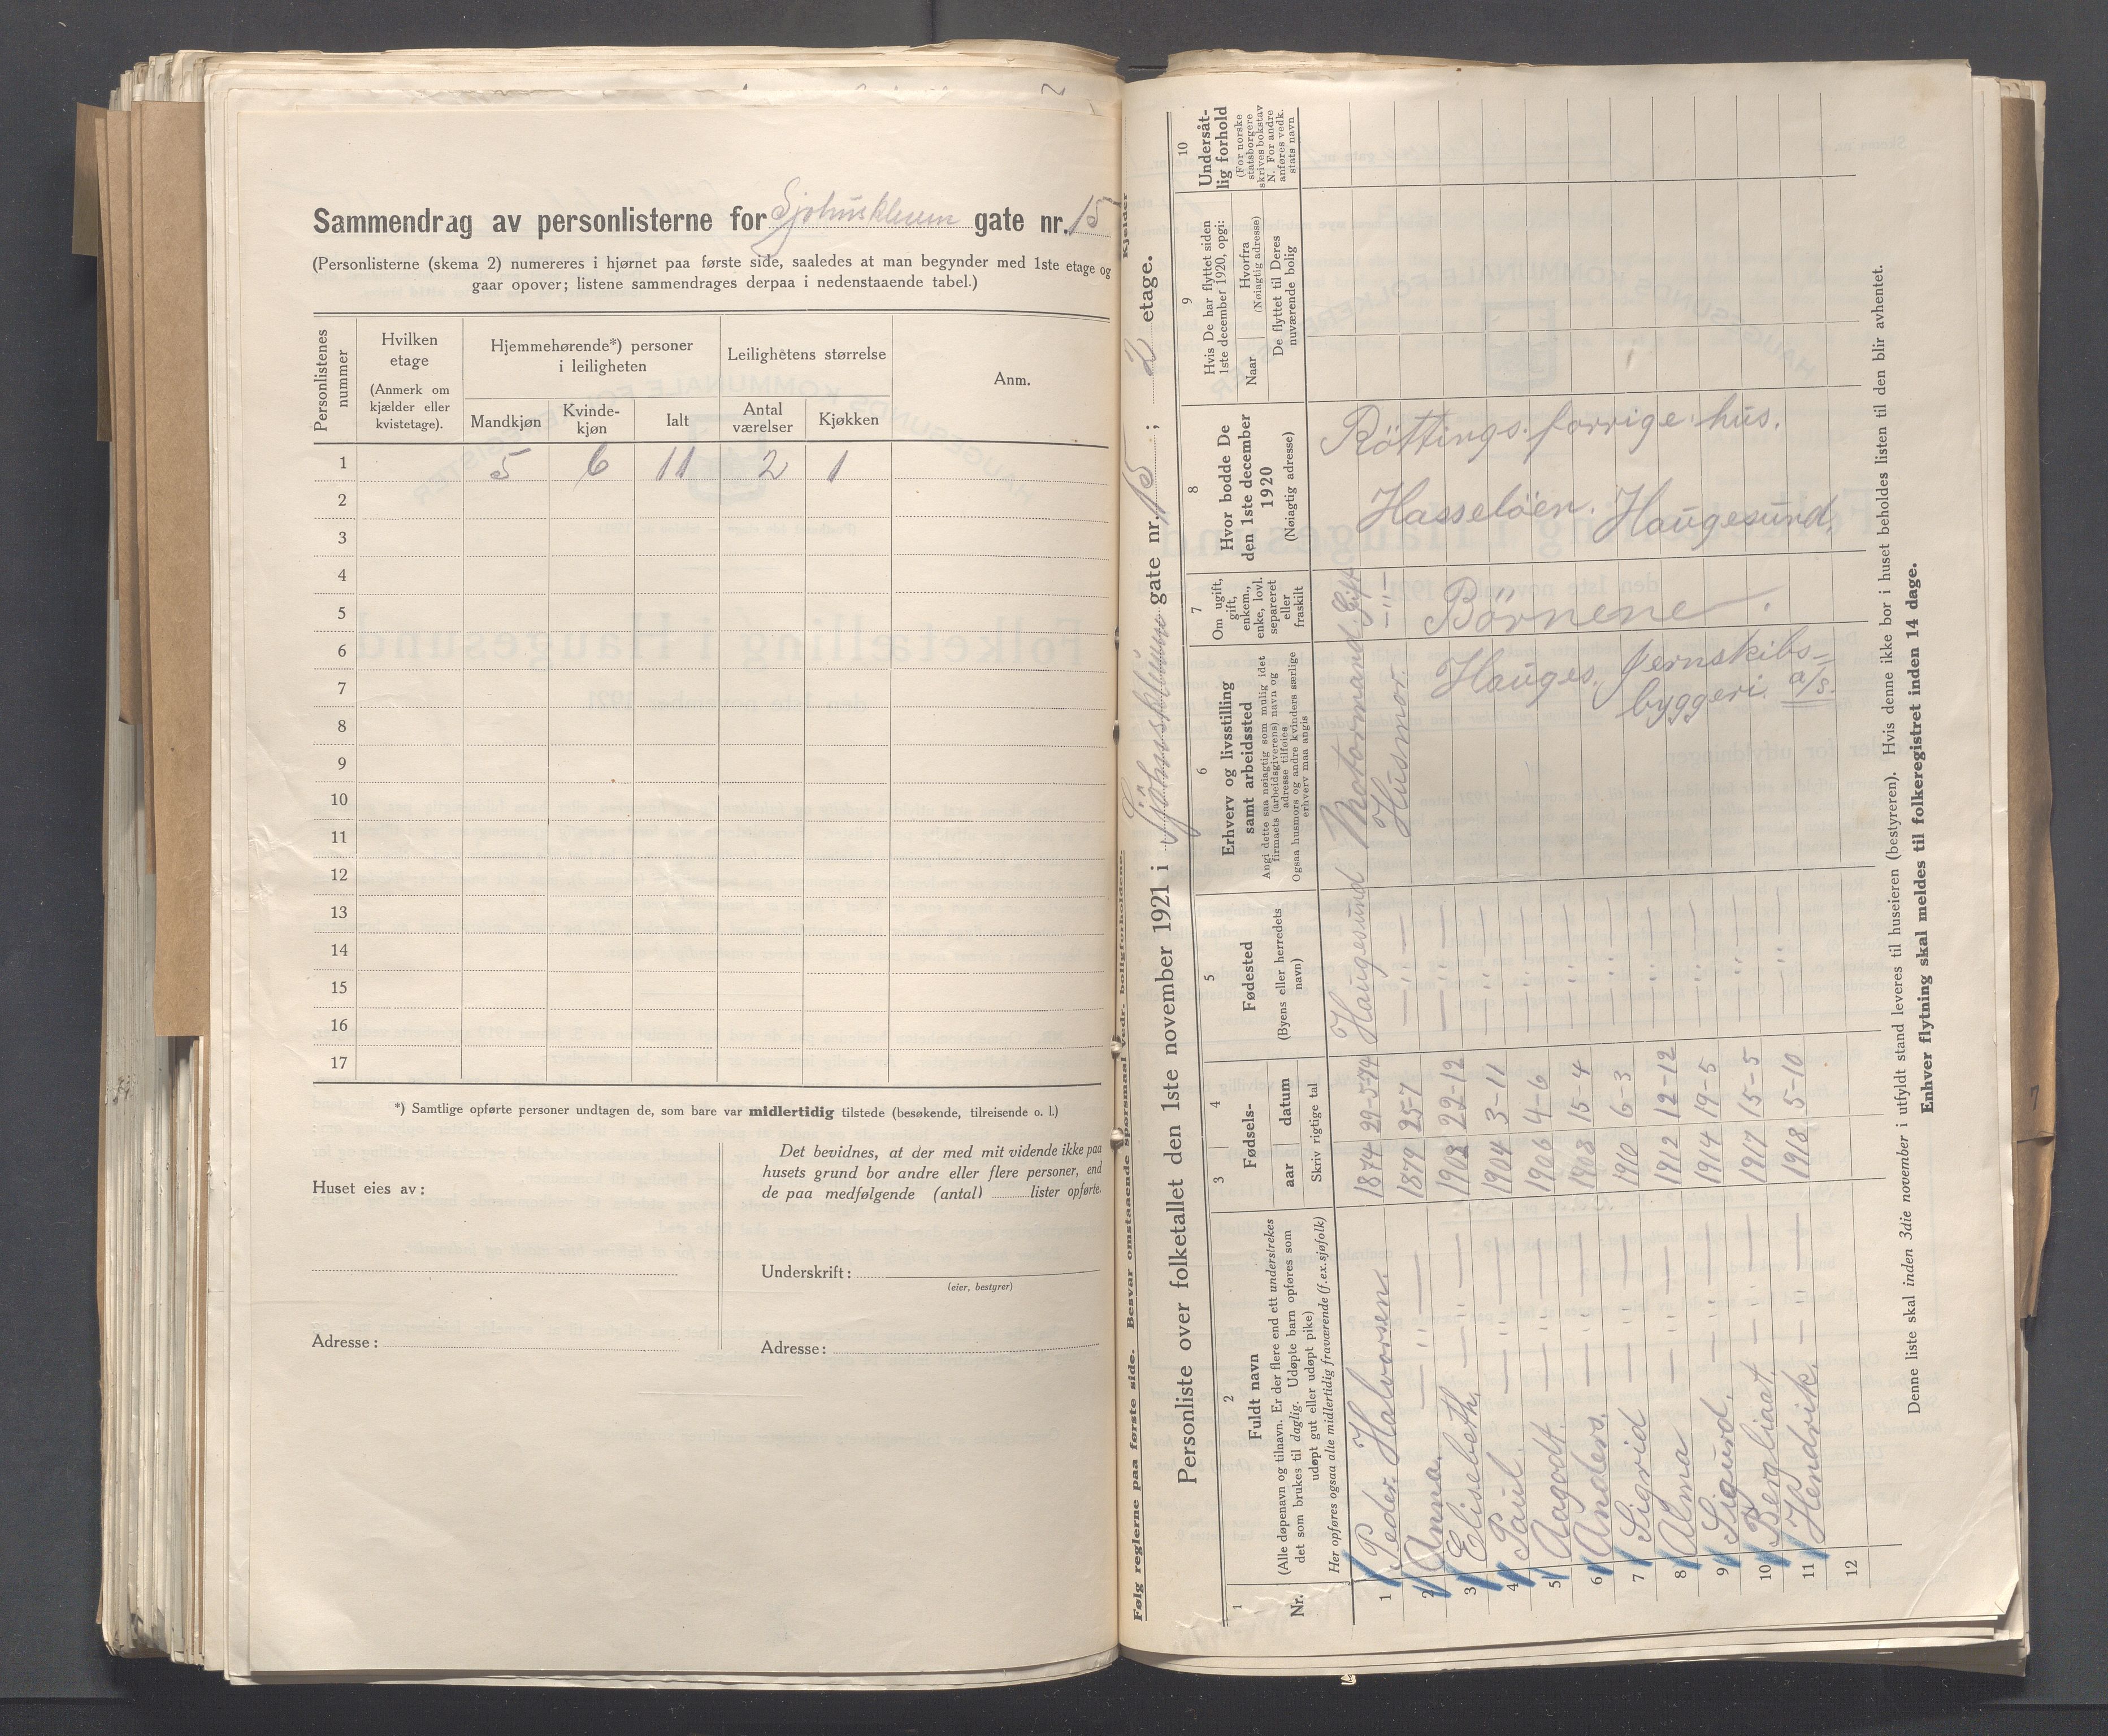 Sammendrag av personlisterne for Sjøhuskleven gate nr. 15
(Personlisterne (skema 2) numereres i hjørnet paa første side, saaledes at man begynder med 1ste etage og
gaar opover; listene sammendrages derpaa i nedenstaaende tabel.)
Personlistenes nummer
Hvilken etage (Anmerk om kjælder eller kvistetage).
Hjemmehørende*) personer i leiligheten
Leilighetens størrelse
Anm.
Mandkjøn Kvinde-kjøn Ialt Antal værelser Kjøkken
1 5 6 11 2 1
2
3
4
5
6
7
8
9
10
11
12
13
14
15
16
17
*) Samtlige opførte personer undtagen de, som bare var midlertidig tilstede (besøkende, tilreisende o. l.)
Huset eies av:
Adresse:
Det bevidnes, at der med mit vidende ikke paa
husets grund bor andre eller flere personer, end
de paa medfølgende (antal) lister opførte.
Underskrift:
(eier, bestyrer)
Adresse:
Følg reglerne paa første side. Besvar omstaaende spørsmaal vedr. boligforholdene.
Kjelder
Personliste over folketallet den 1ste november 1921 i Sjöhuskleven gate nr. 15; 2 etage.
1 2 3 4 5 6 7 8 9 10
Nr.
Fuldt navn
(Alle døpenavn og tilnavn. Er der flere end ett understrekes
det som brukes til daglig. Udøpte barn opføres som
udøpt gut eller udøpt pike)
Her opføres ogsaa alle midlertidig fraværende (f.ex. sjøfolk)
Fødsels-
aar datum
Skriv rigtige tal
Fødested
(Byens eller herredets
navn)
Erhverv og livsstilling
samt arbeidssted
Angi dette saa nøiagtig som mulig idet
firmaets (arbeidsgiverens) navn og
adresse tilføies
Ogsaa husmors og andre kvinders særlige
erhverv maa angis
Om ugift,
gift,
enkem.,
enke, lovl.
separeret
eller
fraskilt
Hvor bodde De
den 1ste december
1920
(Nøiagtig adresse)
Hvis De har flyttet siden
1ste december 1920, opgi:
Naar
Hvorfra
(Nøiagtig adresse)
De flyttet til Deres
nuværende bolig
Undersåt-
lig forhold
(For norske
statsborgere
skrives bokstav
N. For andre
anføres vedk.
stats navn
1 Peder Halvorsen. 1874 29-5-74 Haugesund Motormand. Gift Röttings. forrige hus.
2 Anna. —"— 1879 25-7 —"— Husmor. —"— Hasselöen. Haugesund.
3 Elisebeth. —"— 1903 22-12 —"— Hauges. Jernskibs= byggeri. a/s. Börnene.
4 Paul. —"— 1904 3-11 —"—
5 Aagodt. —"— 1906 4-6 —"—
6 Anders. —"— 1908 15-4 —"—
7 Sigrid —"— 1910 6-3 —"—
8 Alma —"— 1912 12-12 —"—
9 Sigurd. —"— 1914 19-5 —"—
10 Bergliaat. —"— 1917 15-5 —"—
11 Hendrik. —"— 1918 5-10 —"—
12
Denne liste skal inden 3die november i utfyldt stand leveres til huseieren (bestyreren). Hvis denne ikke bor i huset beholdes listen til den blir avhentet.
Enhver flytning skal meldes til folkeregistret inden 14 dage.